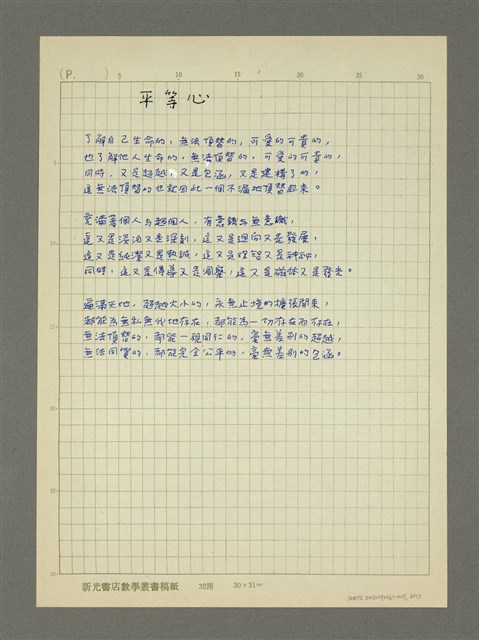 (P. ) 5 10 15 20 25 30
平等心
了解自己生命的，無法頂替的，可愛的可貴的，
也了解他人生命的，無法頂替的，可愛的可貴的，
同時，又是超越，又是包涵，又是建構了的，
這無法頂替的也就因此一個不漏地頂替起來。
充滿著個人與超個人，有意識與無意識，
這又是淡泊又是深刻，這又是迴向又是發展，
這又是純潔又是熱誠，這又是理智又是神祕，
同時，這又是傳導又是洞察，這又是磁体又是發光。
遍滿天地，超越大小的，永無止境的擴張開來，
都能為無私無我地存在，都能為一切存在而存在，
無法頂替的，都能一視同仁的，毫無差別的超越，
無法同質的，都能完全公平的，毫無差別的包涵。
新光書店數學叢書稿紙 32開 30×31